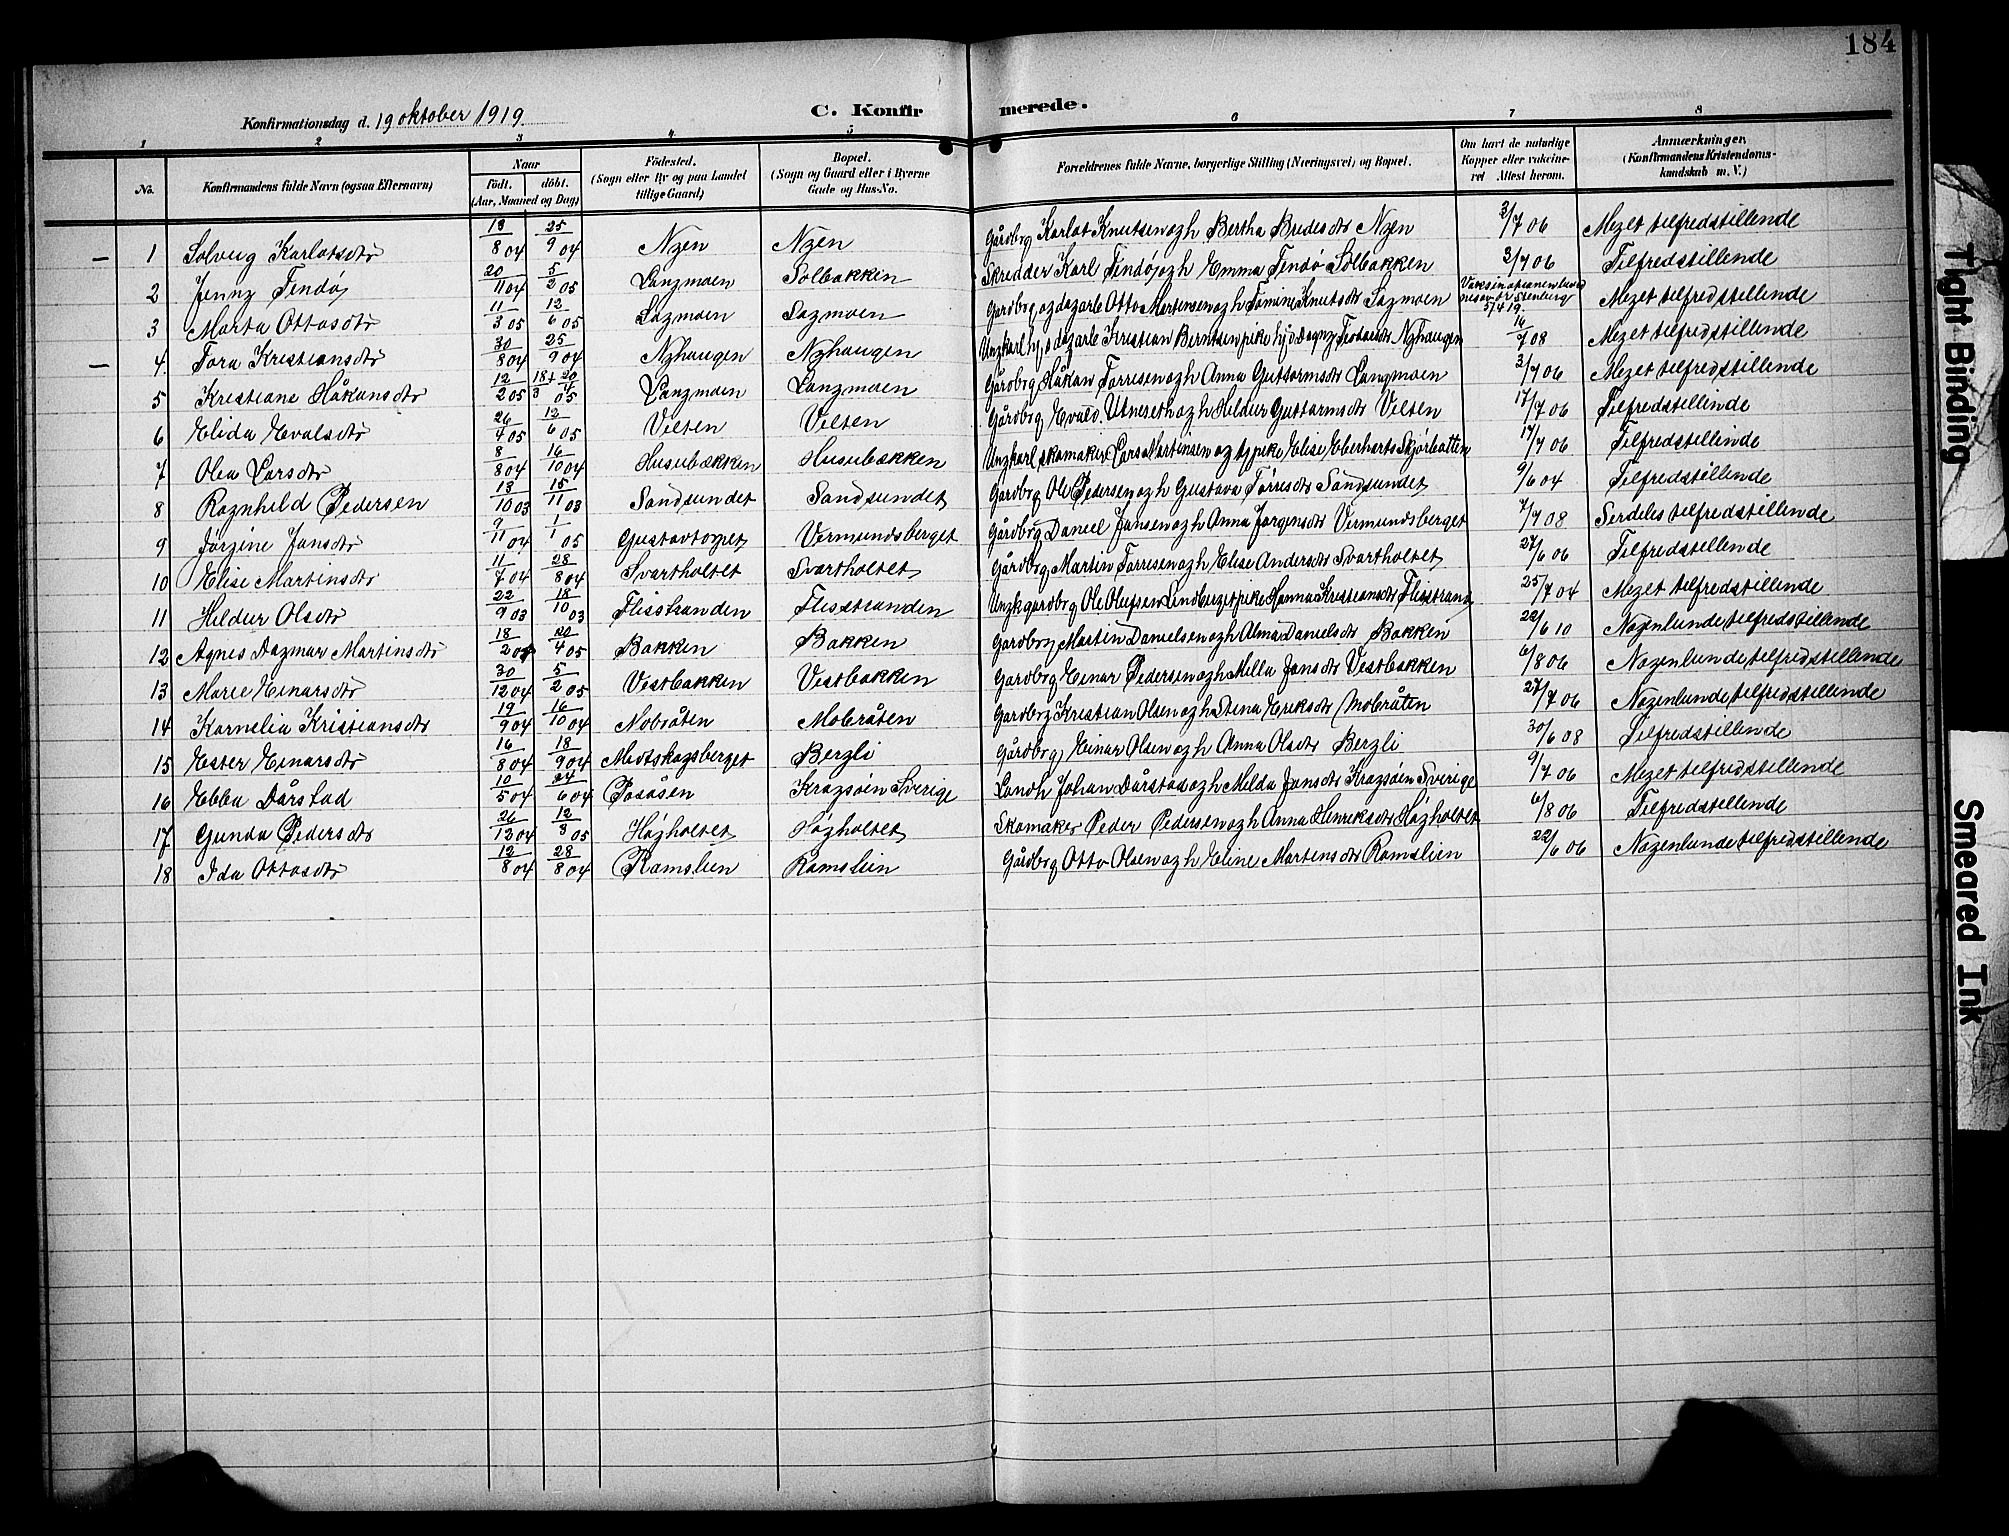 184
Konfirmationsdag d. 19 oktober 1919.
C. Konfirmerede.
1 2 3 4 5 6 7 8
No. Konfirmandens fulde Navn (ogsaa Efternavn) Naar födt. döbt. (Aar, Maaned og Dag) Födested. (Sogn eller By og paa Landet tillige Gaard) Bopæl. (Sogn og Gaard eller i Byerne Gade og Hus-No. Forældrenes fulde Navne, borgerlige Stilling (Næringsvei) og Bopæl. Om havt de naturlige Kopper eller vakcineret Attest herom. Anmærkninger. (Konfirmandens Kristendomskundskab m. V.)
1 Solveig Karlotsdtr 19/8 04 25/9 04 Nyen Nyen Gårdbrg Karlot Knutsen og h Bertha Bredesdtr Nyen 3/7 06 Meget tilfredstillende
2 Jenny Tendø 20/11 04 5/2 05 Langmoen Solbakken Skrædder Karl Tendø og h Emma Tendø Solbakken 3/7 06 Tilfredstillende
3 Marta Ottosdtr 11/3 05 12/6 05 Sagmoen Sagmoen Gardbrg og dagarb Otto Mortensen og h Knutsdtr Sagmoen 5/7 19 Meget tilfredstillende
4 Tora Kristiansdtr 30/8 04 25/9 04 Nyhaugen Nyhaugen Ungkarl dagarb Kristian Berntsen pike Dagny Nyhaugen 16/7 08 Meget tilfredstillende
5 Kristiane Håkansdtr 12/2 05 Langmoen Langmoen Gårdbrg Håkan Torresen og h Anna Guttormsdtr Langmoen 3/7 06 Meget tilfredstillende
6 Elida Evalsdtr 26/4 05 12/6 05 Velten Velten Gårdbrg Evald Utneseth og h Heldur Guttormsdtr Velten 17/7 06 Tilfredstillende
7 Olea Larsdtr 8/8 04 16/10 04 Husubækken Husubækken Ungkarl skomaker Lars Martinsen og pike Elise 17/7 06 Tilfredstillende
8 Ragnhild Pedersen 13/10 03 15/11 03 Sandsundet Sandsundet Gårdbrg Ole Pedersen og h Gustava Torresdtr Sandsundet 9/6 04 Tilfredstillende
9 Jørgine Jansdtr 9/11 04 1/1 05 Gustavtorpet Vermundsberget Gårdbrg Daniel Jansen og h Anna Jørgensdtr Vermundsberget 7/7 08 Serdeles tilfredstillende
10 Elise Martinsdtr 11/7 04 28/8 04 Svartholtet Svartholtet Gårdbrg Martin Torresen og h Elise Andersdtr Svartholtet 27/6 06 Tilfredstillende
11 Heldur Olsdtr 22/9 03 18/10 03 Flisstranden Flisstranden Ungk gardbrg Ole Olufsen Lindberget pike Hanna Kristiansdtr Flisstrand 25/7 04 Meget tilfredstillende
12 Agnes Dagmar Martinsdtr 18/2 05 20/4 05 Bakken Bakken Gardbrg Martin Danielsen og h Alma Danielsdtr Bakken 22/6 10 Nogenlunde tilfredstillende
13 Marie Einarsdtr 30/12 04 5/2 05 Vestbakken Vestbakken Gardbrg Einar Pedersen og h Milla Jansdtr Vestbakken 6/8 06 Nogenlunde tilfredstillende
14 Kornelia Kristiansdtr 19/9 04 16/10 04 Mobråten Mobråten Gardbrg Kristian Olsen og h Stina Eriksdtr Mobråten 27/7 06 Nogenlunde tilfredstillende
15 Ester Einarsdtr 16/8 04 18/9 04 Medskogsberget Bergli Gårdbrg Einar Olsen og h Anna Olsdtr Bergli 30/6 08 Tilfredstillende
16 Ebba Dårstad 10/5 04 24/6 04 Posåsen Kragsøen Sverige Landh Johan Dårstad og h Melda Jansdtr Kragsøen Sverige 9/7 06 Meget tilfredstillende
17 Gunda Pedersdtr 26/12 04 12/3 05 Høgholtet Høgholtet Skomaker Peder Pedersen og h Anna Henriksdtr Høgholtet 6/8 06 Tilfredstillende
18 Ida Ottosdtr 12/8 04 28/8 04 Ramslien Ramslien Gårdbrg Otto Olsen og h Eline Martensdtr Ramslien 22/6 06 Nogenlunde tilfredstillende
Tight Binding
Smeared Ink